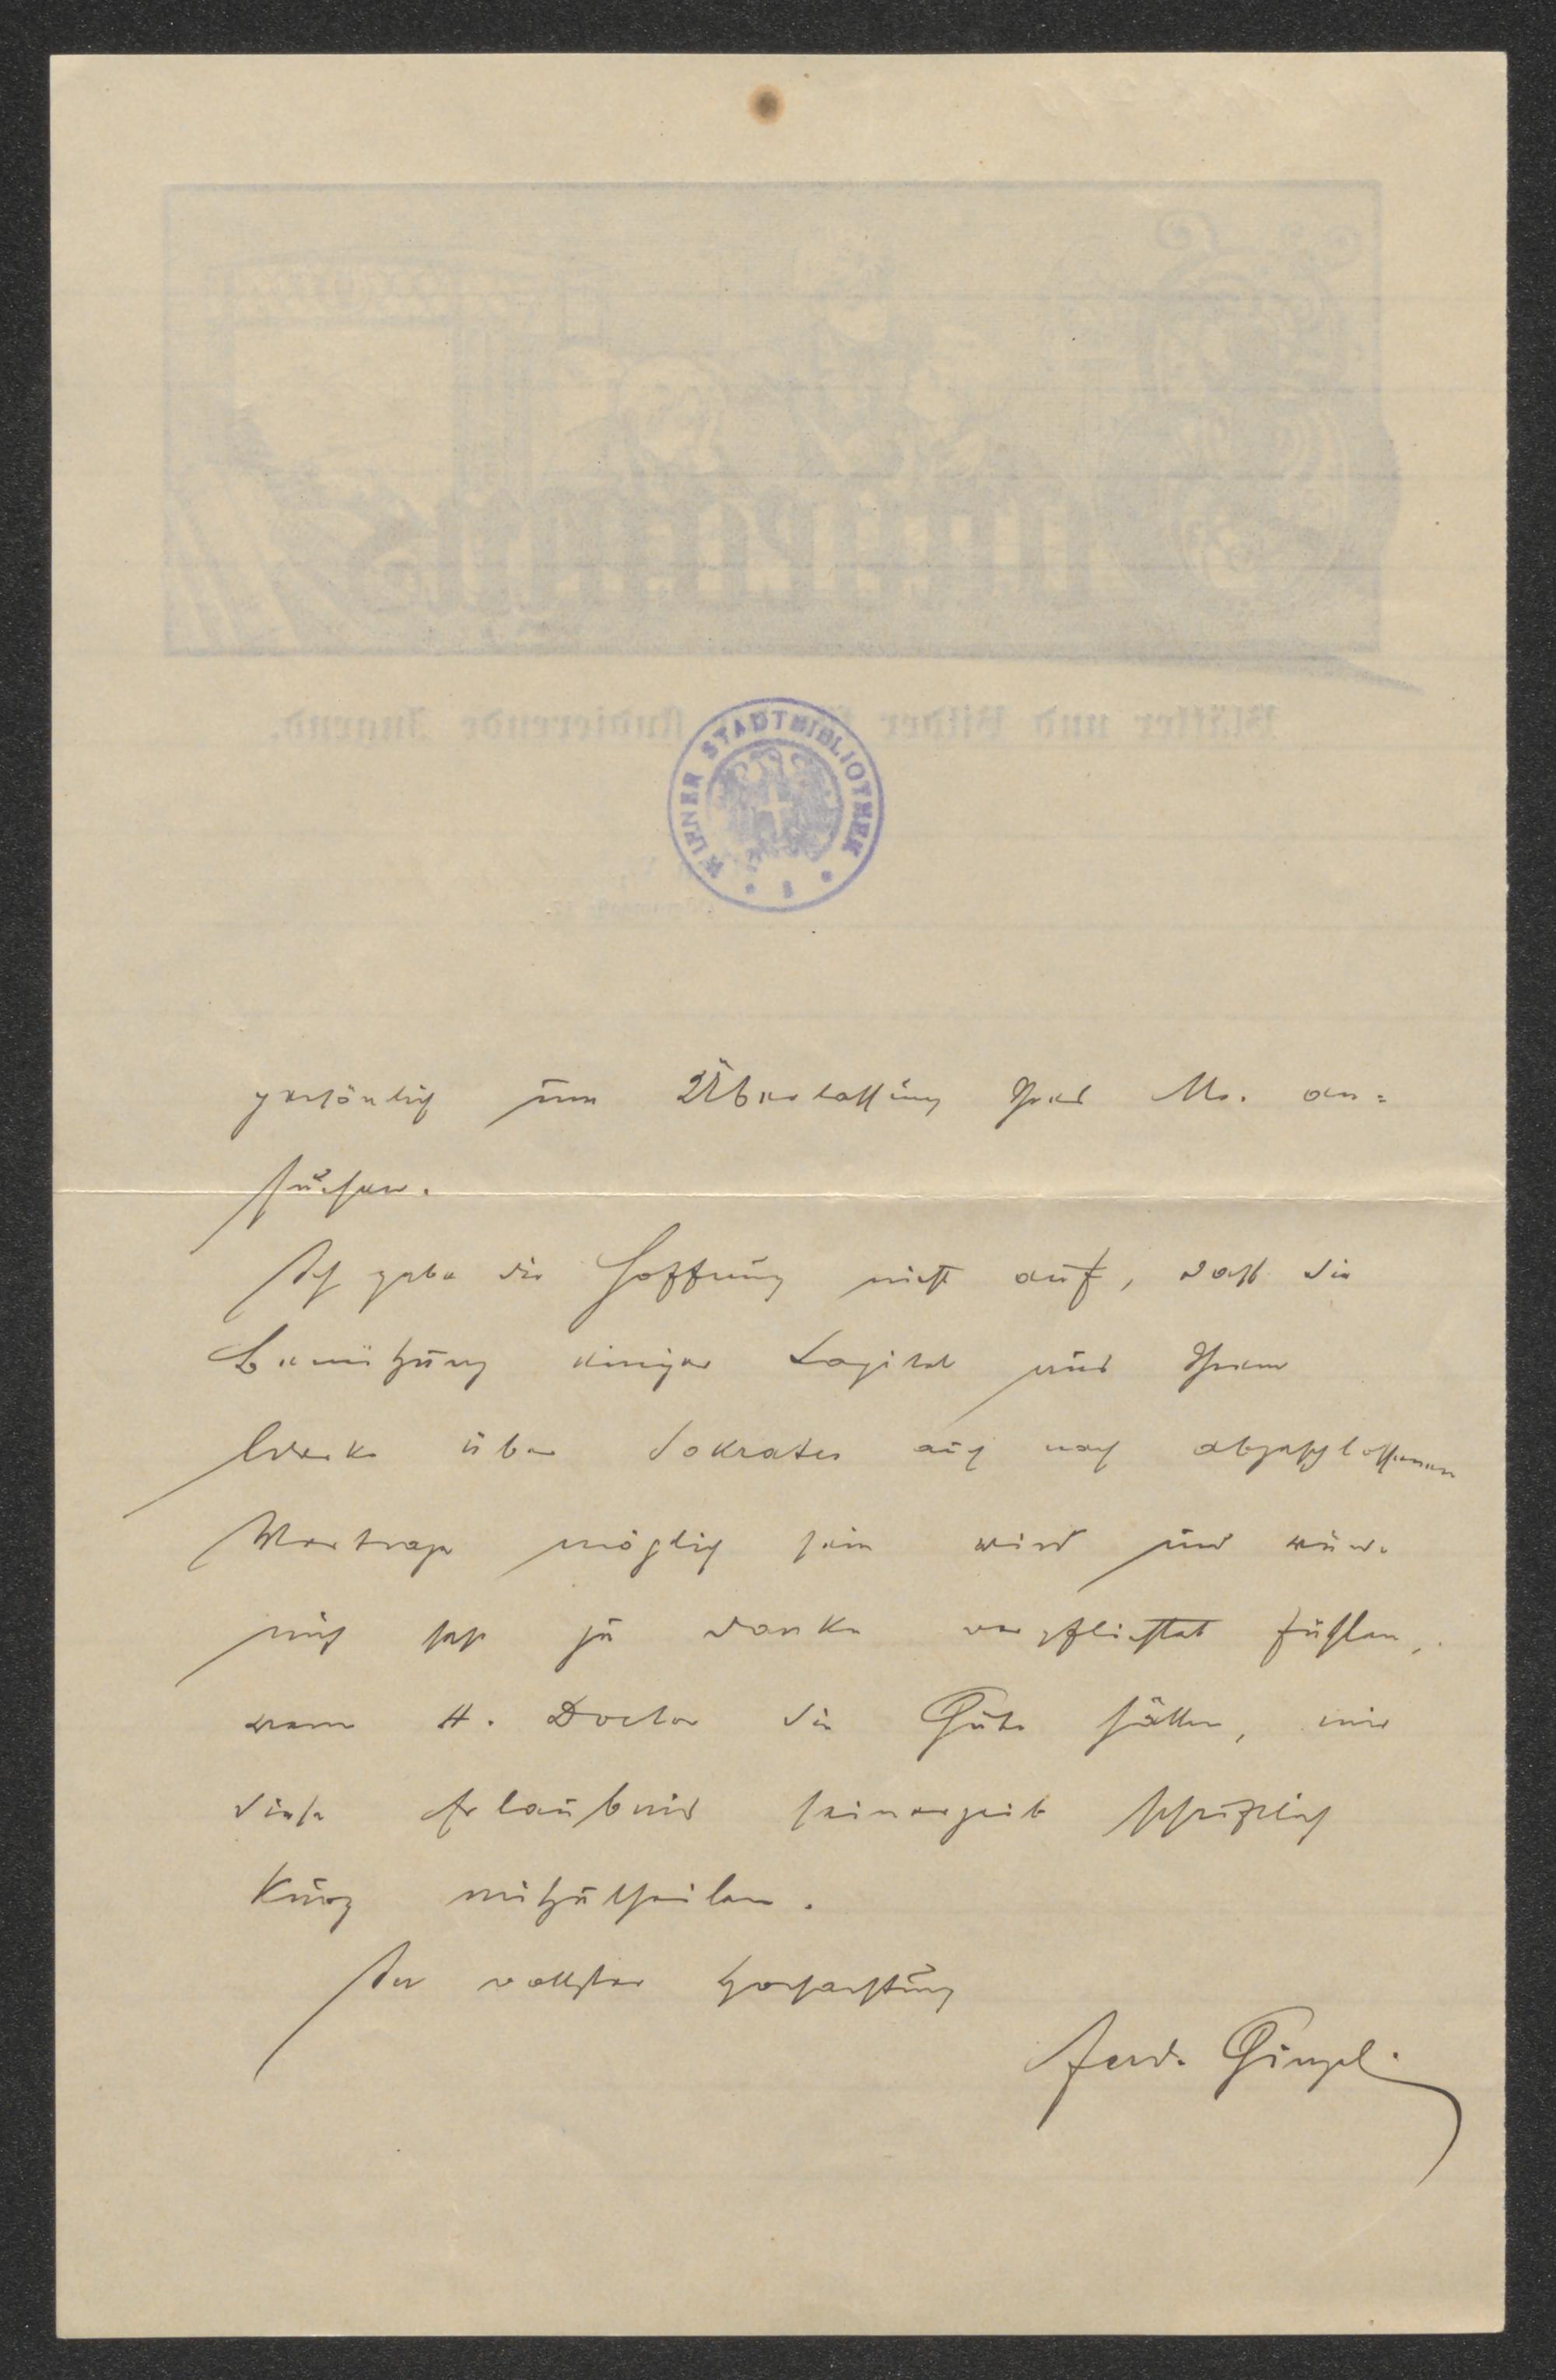 Blätter und Bilder für die studierende Jugend.
WIENER STADTBIBLIOTHEK
persönlich um Überlassung Ihres Ms. an=
suchen.
Ich gebe die Hoffnung nicht auf, dass die
Benützung einiger Capitel aus Ihrem
Werke über Sokrates auch nach abgeschlossenem
Vertrage möglich sein wird und würde
mich sehr zu Danke verpflichtet fühlen,
wenn H. Doctor die Güte hätten, mir
diese Erlaubnis seinerzeit schriftlich
kurz mitzutheilen.
In vollster Hochachtung
Ferd. Ginzel.